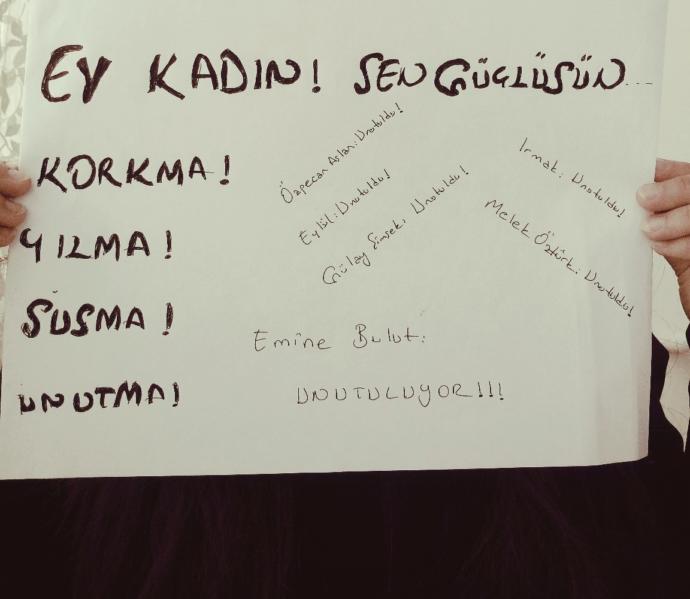 EY KADIN! SEN GÜÇLÜSÜN...
KORKMA!
YILMA!
SUSMA!
UNUTMA!
Özgecan Aslan: Unutuldu!
Eylül: Unutuldu!
Gülay Şimşek: Unutuldu!
Irmak: Unutuldu!
Melek Öztürk: Unutuldu!
Emine Bulut:
UNUTULUYOR!!!